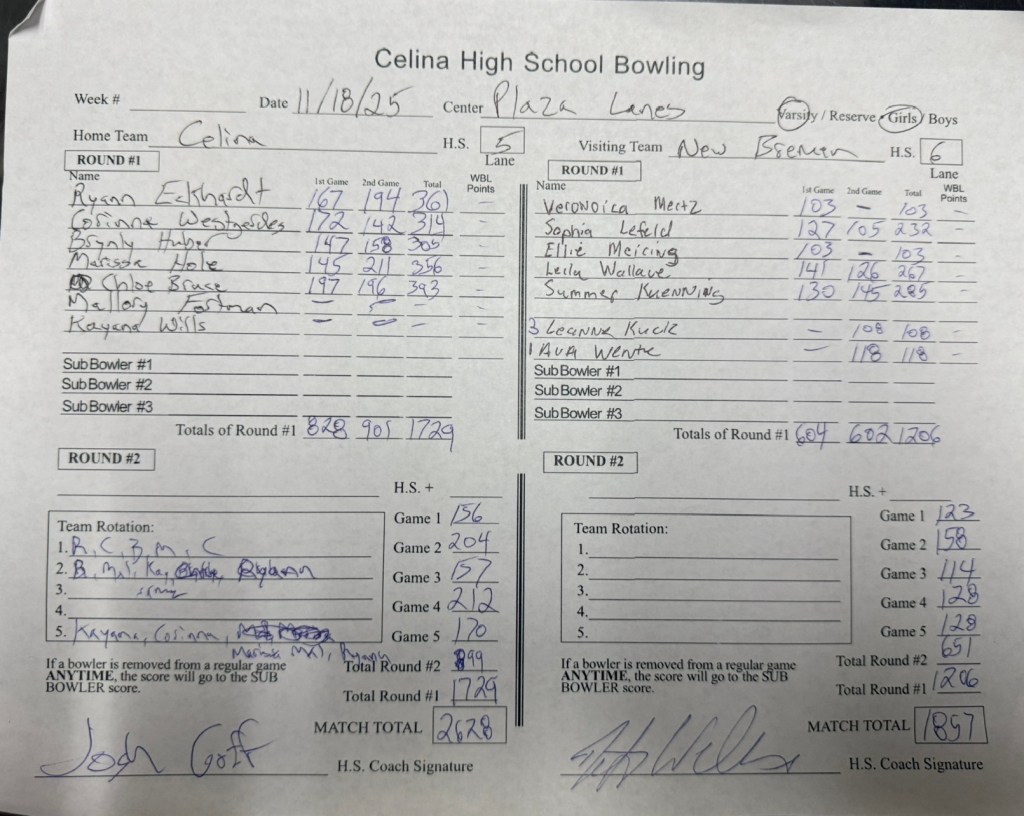 Celina High School Bowling
Week # Date 11/18/25 Center Plaza Lanes Varsity / Reserve Girls Boys
Home Team Celina H.S. 5 Lane
ROUND #1
Name 1st Game 2nd Game Total WBL Points
Ryann Eckhardt 167 194 361 -
Corinna 172 142 314 -
Brynly Huber 147 158 305 -
Marissa Hole 145 211 356 -
Chloe Bruce 197 196 393 -
Mallory Fortman - -
Kayana Wills - -
Sub Bowler #1
Sub Bowler #2
Sub Bowler #3
Totals of Round #1 828 901 1729
ROUND #2
H.S. +
Team Rotation:
1. R, C, B, M, C
2. B, Mal, Ka, Ryann
3.
4.
5. Kayana, Corinna,
Marissa Mal, Ryann
Game 1 156
Game 2 204
Game 3 157
Game 4 212
Game 5 170
Total Round #2 899
Total Round #1 1729
MATCH TOTAL 2628
If a bowler is removed from a regular game
ANYTIME, the score will go to the SUB
BOWLER score.
Josh Goff
H.S. Coach Signature
Visiting Team New Bremen H.S. 6 Lane
ROUND #1
Name 1st Game 2nd Game Total WBL Points
Veronoica Mertz 103 - 103 -
Sophia Lefeld 127 105 232 -
Ellie Meiring 103 - 103 -
Leila Wallace 141 126 267 -
Summer Kuenning 130 145 285 -
3 Leanna Kuck - 108 108 -
1 Ava Wente - 118 118 -
Sub Bowler #1
Sub Bowler #2
Sub Bowler #3
Totals of Round #1 604 602 1206
ROUND #2
H.S. +
Team Rotation:
1.
2.
3.
4.
5.
Game 1 123
Game 2 158
Game 3 114
Game 4 128
Game 5 128
Total Round #2 651
Total Round #1 1206
MATCH TOTAL 1857
If a bowler is removed from a regular game
ANYTIME, the score will go to the SUB
BOWLER score.
H.S. Coach Signature